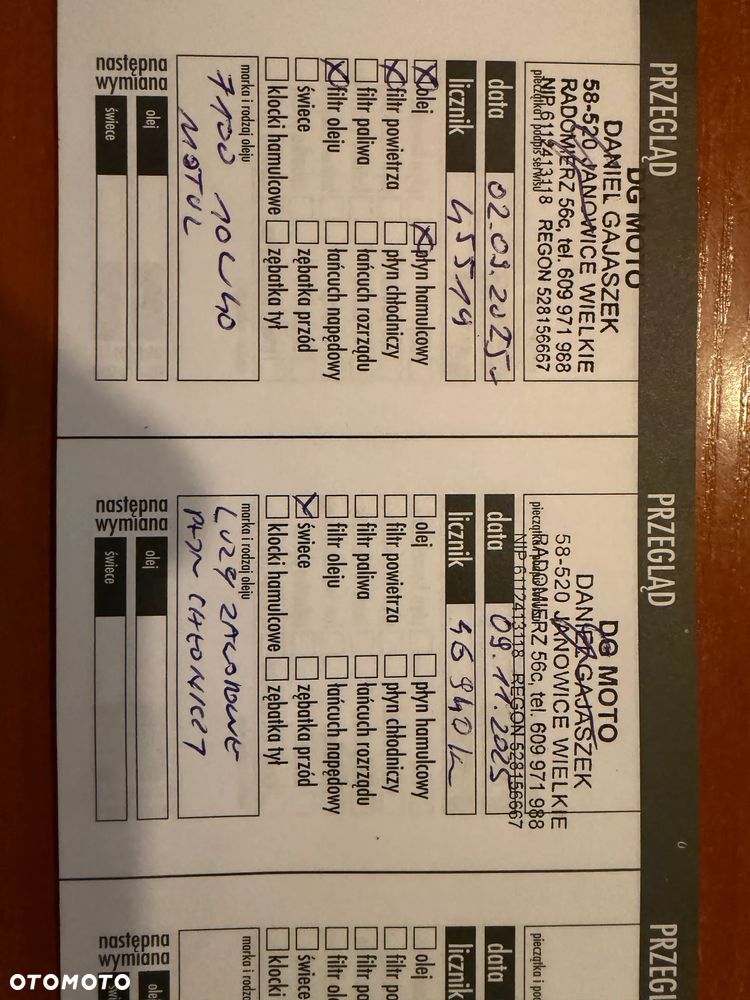 PRZEGLĄD
DG MOTO
DANIEL GAJASZEK
58-520 JANOWICE WIELKIE
RADOMIERZ 56c, tel. 609 971 988
NIP 6112413118 REGON 528156667
pieczątka i podpis serwisu
data 02.09.2025r
licznik 45514
olej
płyn hamulcowy
filtr powietrza
płyn chłodniczy
filtr paliwa
łańcuch rozrządu
filtr oleju
łańcuch napędowy
świece
zębatka przód
klocki hamulcowe
zębatka tył
marka i rodzaj oleju
7100 10W40
MOTUL
następna
wymiana
olej
świece
PRZEGLĄD
DG MOTO
DANIEL GAJASZEK
58-520 JANOWICE WIELKIE
RADOMIERZ 56c, tel. 609 971 988
NIP 6112413118 REGON 528156667
data 09.11.2025
licznik 46940 k
olej
płyn hamulcowy
filtr powietrza
płyn chłodniczy
filtr paliwa
łańcuch rozrządu
filtr oleju
łańcuch napędowy
świece
zębatka przód
klocki hamulcowe
zębatka tył
marka i rodzaj oleju
LUZY ZAWOROWE
PŁYN CHŁODNICZY
następna
wymiana
olej
świece
PRZEGL
pieczątka i po
data
licznik
olej
filtr po
filtr pa
filtr ol
świece
klocki
marka i rodz
następna
wymiana
olej
OTOMOTO